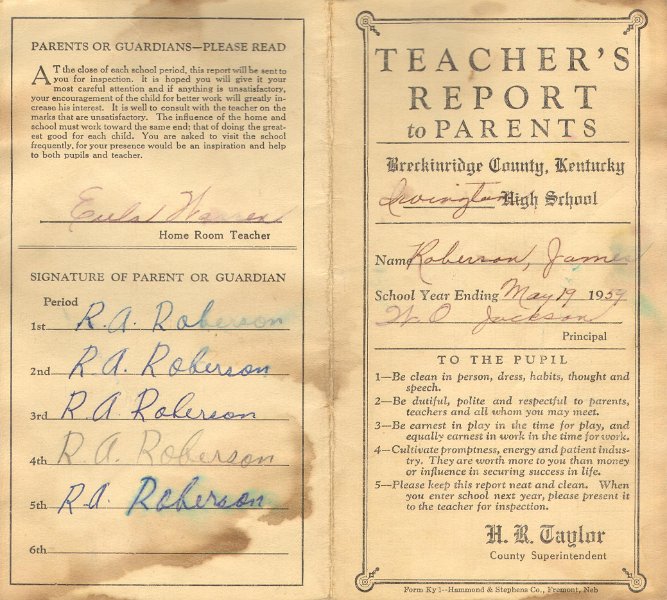 PARENTS OR GUARDIANS—PLEASE READ
AT the close of each school period, this report will be sent to
you for inspection. It is hoped you will give it your
most careful attention and if anything is unsatisfactory,
your encouragement of the child for better work will greatly in-
crease his interest. It is well to consult with the teacher on the
marks that are unsatisfactory. The influence of the home and
school must work toward the same end; that of doing the great-
est good for each child. You are asked to visit the school
frequently, for your presence would be an inspiration and help
to both pupils and teacher.
Warren
Home Room Teacher
SIGNATURE OF PARENT OR GUARDIAN
Period
1st R.A. Roberson
2nd R.A. Roberson
3rd R.A. Roberson
4th R.A. Roberson
5th R.A. Roberson
6th
TEACHER'S
REPORT
to PARENTS
Breckinridge County, Kentucky
Irvington High School
Name Roberson, James
School Year Ending May 19 1959
W. O Jackson
Principal
TO THE PUPIL
1—Be clean in person, dress, habits, thought and
speech.
2—Be dutiful, polite and respectful to parents,
teachers and all whom you may meet.
3—Be earnest in play in the time for play, and
equally earnest in work in the time for work.
4—Cultivate promptness, energy and patient indus-
try. They are worth more to you than money
or influence in securing success in life.
5—Please keep this report neat and clean. When
you enter school next year, please present it
to the teacher for inspection.
H. R. Taylor
County Superintendent
Form Ky 1—Hammond & Stephens Co., Fremont, Neb